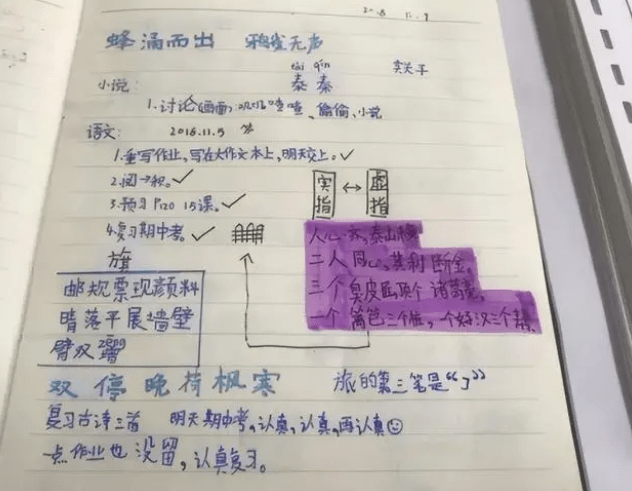 蜂涌而出 鸦雀无声
tài qín
泰 秦
小说:
1.讨论(画面):叽叽喳喳、偷偷、小说
语文: 2018.11.5
1.重写作业,写在大作文本上,明天交上。✓
2.阅→积。✓
3.预习P120 15课。✓
4.复习期中考。✓
实指 ↔ 虚指
人心齐,泰山移
二人同心,其利断金。
三个臭皮匠顶个诸葛亮。
一个篱笆三个桩,一个好汉三个帮。
旗
邮规票现颜料
晴落平展墙壁
臂双增
双停晚荷枫寒
旅的第三笔是“𠃌”
复习古诗三首 明天期中考,认真,认真,再认真☺
一点作业也没留,认真复习。